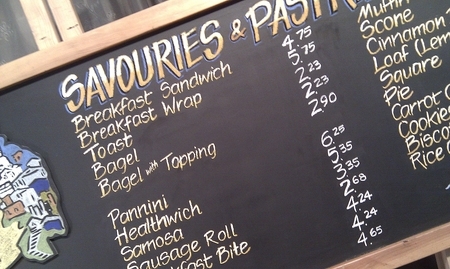 SAVOURIES & PASTR
Breakfast Sandwich 4.75
Breakfast Wrap 5.75
Toast 2.23
Bagel 2.23
Bagel with Topping 2.90
Pannini 6.25
Healthwich 5.35
Samosa 3.35
Sausage Roll 2.68
kfast Bite 4.24
4.24
4.65
Muffin
Scone
Cinnamon
Loaf (Lem
Square
Pie
Carrot C
Cookies
Bisco
Rice